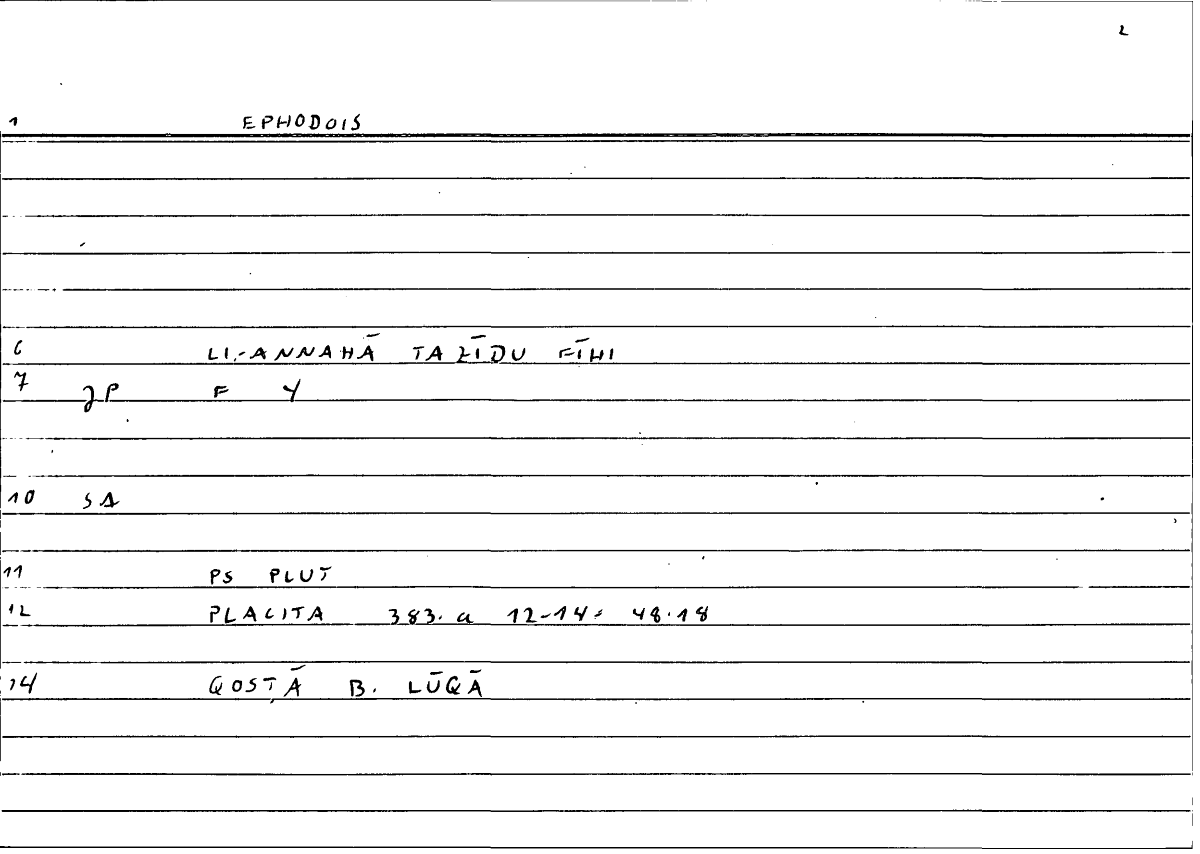 2
1 EPHODOIS
6 LI-ANNAHĀ TAZĪDU FĪHI
7 JP F Y
10 SA
11 PS PLUT
12 PLACITA 383. a 12-14 = 48.18
14 QOSṬĀ B. LŪQĀ